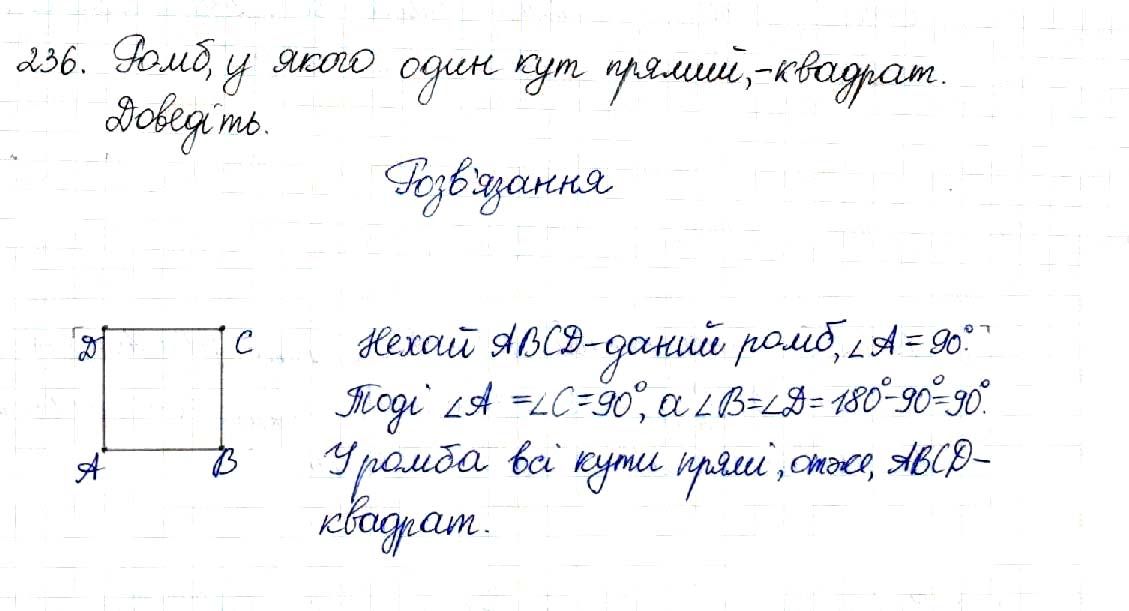 236. Ромб, у якого один кут прямий, -квадрат.
Доведіть.
Розв'язання
D C
A B
Нехай ABCD-даний ромб, ∠A = 90°.
Тоді ∠A = ∠C = 90°, а ∠B = ∠D = 180°-90°=90°.
У ромба всі кути прямі, отже, ABCD-
квадрат.